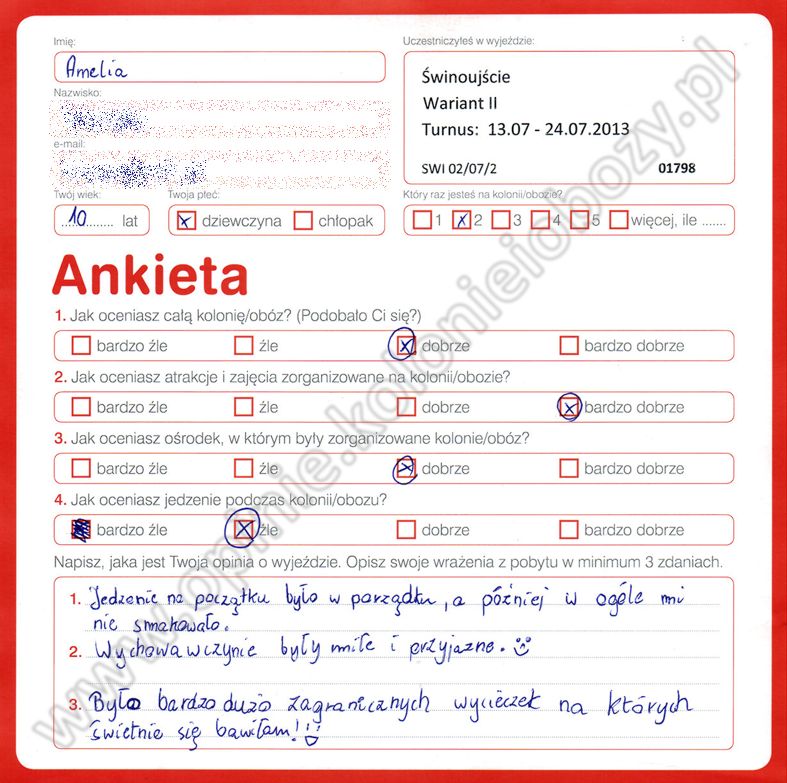 Imię:
Amelia
Nazwisko:
e-mail:
Twój wiek:
10 lat
Twoja płeć:
dziewczyna chłopak
Uczestniczyłeś w wyjeździe:
Świnoujście
Wariant II
Turnus: 13.07 - 24.07.2013
SWI 02/07/2 01798
Który raz jesteś na kolonii/obozie?
1 2 3 4 5 więcej, ile .......
Ankieta
1. Jak oceniasz całą kolonię/obóz? (Podobało Ci się?)
bardzo źle źle dobrze bardzo dobrze
2. Jak oceniasz atrakcje i zajęcia zorganizowane na kolonii/obozie?
bardzo źle źle dobrze bardzo dobrze
3. Jak oceniasz ośrodek, w którym były zorganizowane kolonie/obóz?
bardzo źle źle dobrze bardzo dobrze
4. Jak oceniasz jedzenie podczas kolonii/obozu?
bardzo źle źle dobrze bardzo dobrze
Napisz, jaka jest Twoja opinia o wyjeździe. Opisz swoje wrażenia z pobytu w minimum 3 zdaniach.
1. Jedzenie na początku było w porządku, a później w ogóle mi
nie smakowało.
2. Wychowawczynie były miłe i przyjazne.
3. Było bardzo dużo zagranicznych wycieczek na których
świetnie się bawiłam!
www.opinie.kolonieiobozy.pl